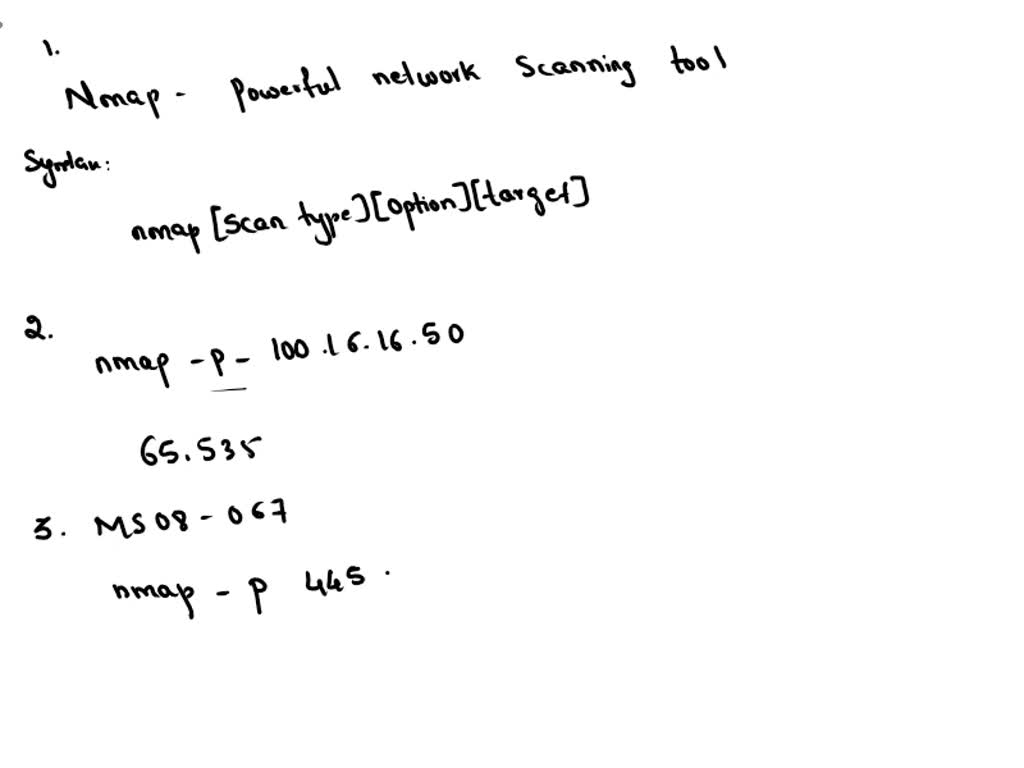 1.
Nmap - Powerful network Scanning tool
Syntax:
nmap [Scan type][Option][target]
2.
nmap -p- 100.16.16.50
65.535
3. MS08-067
nmap -p 445.